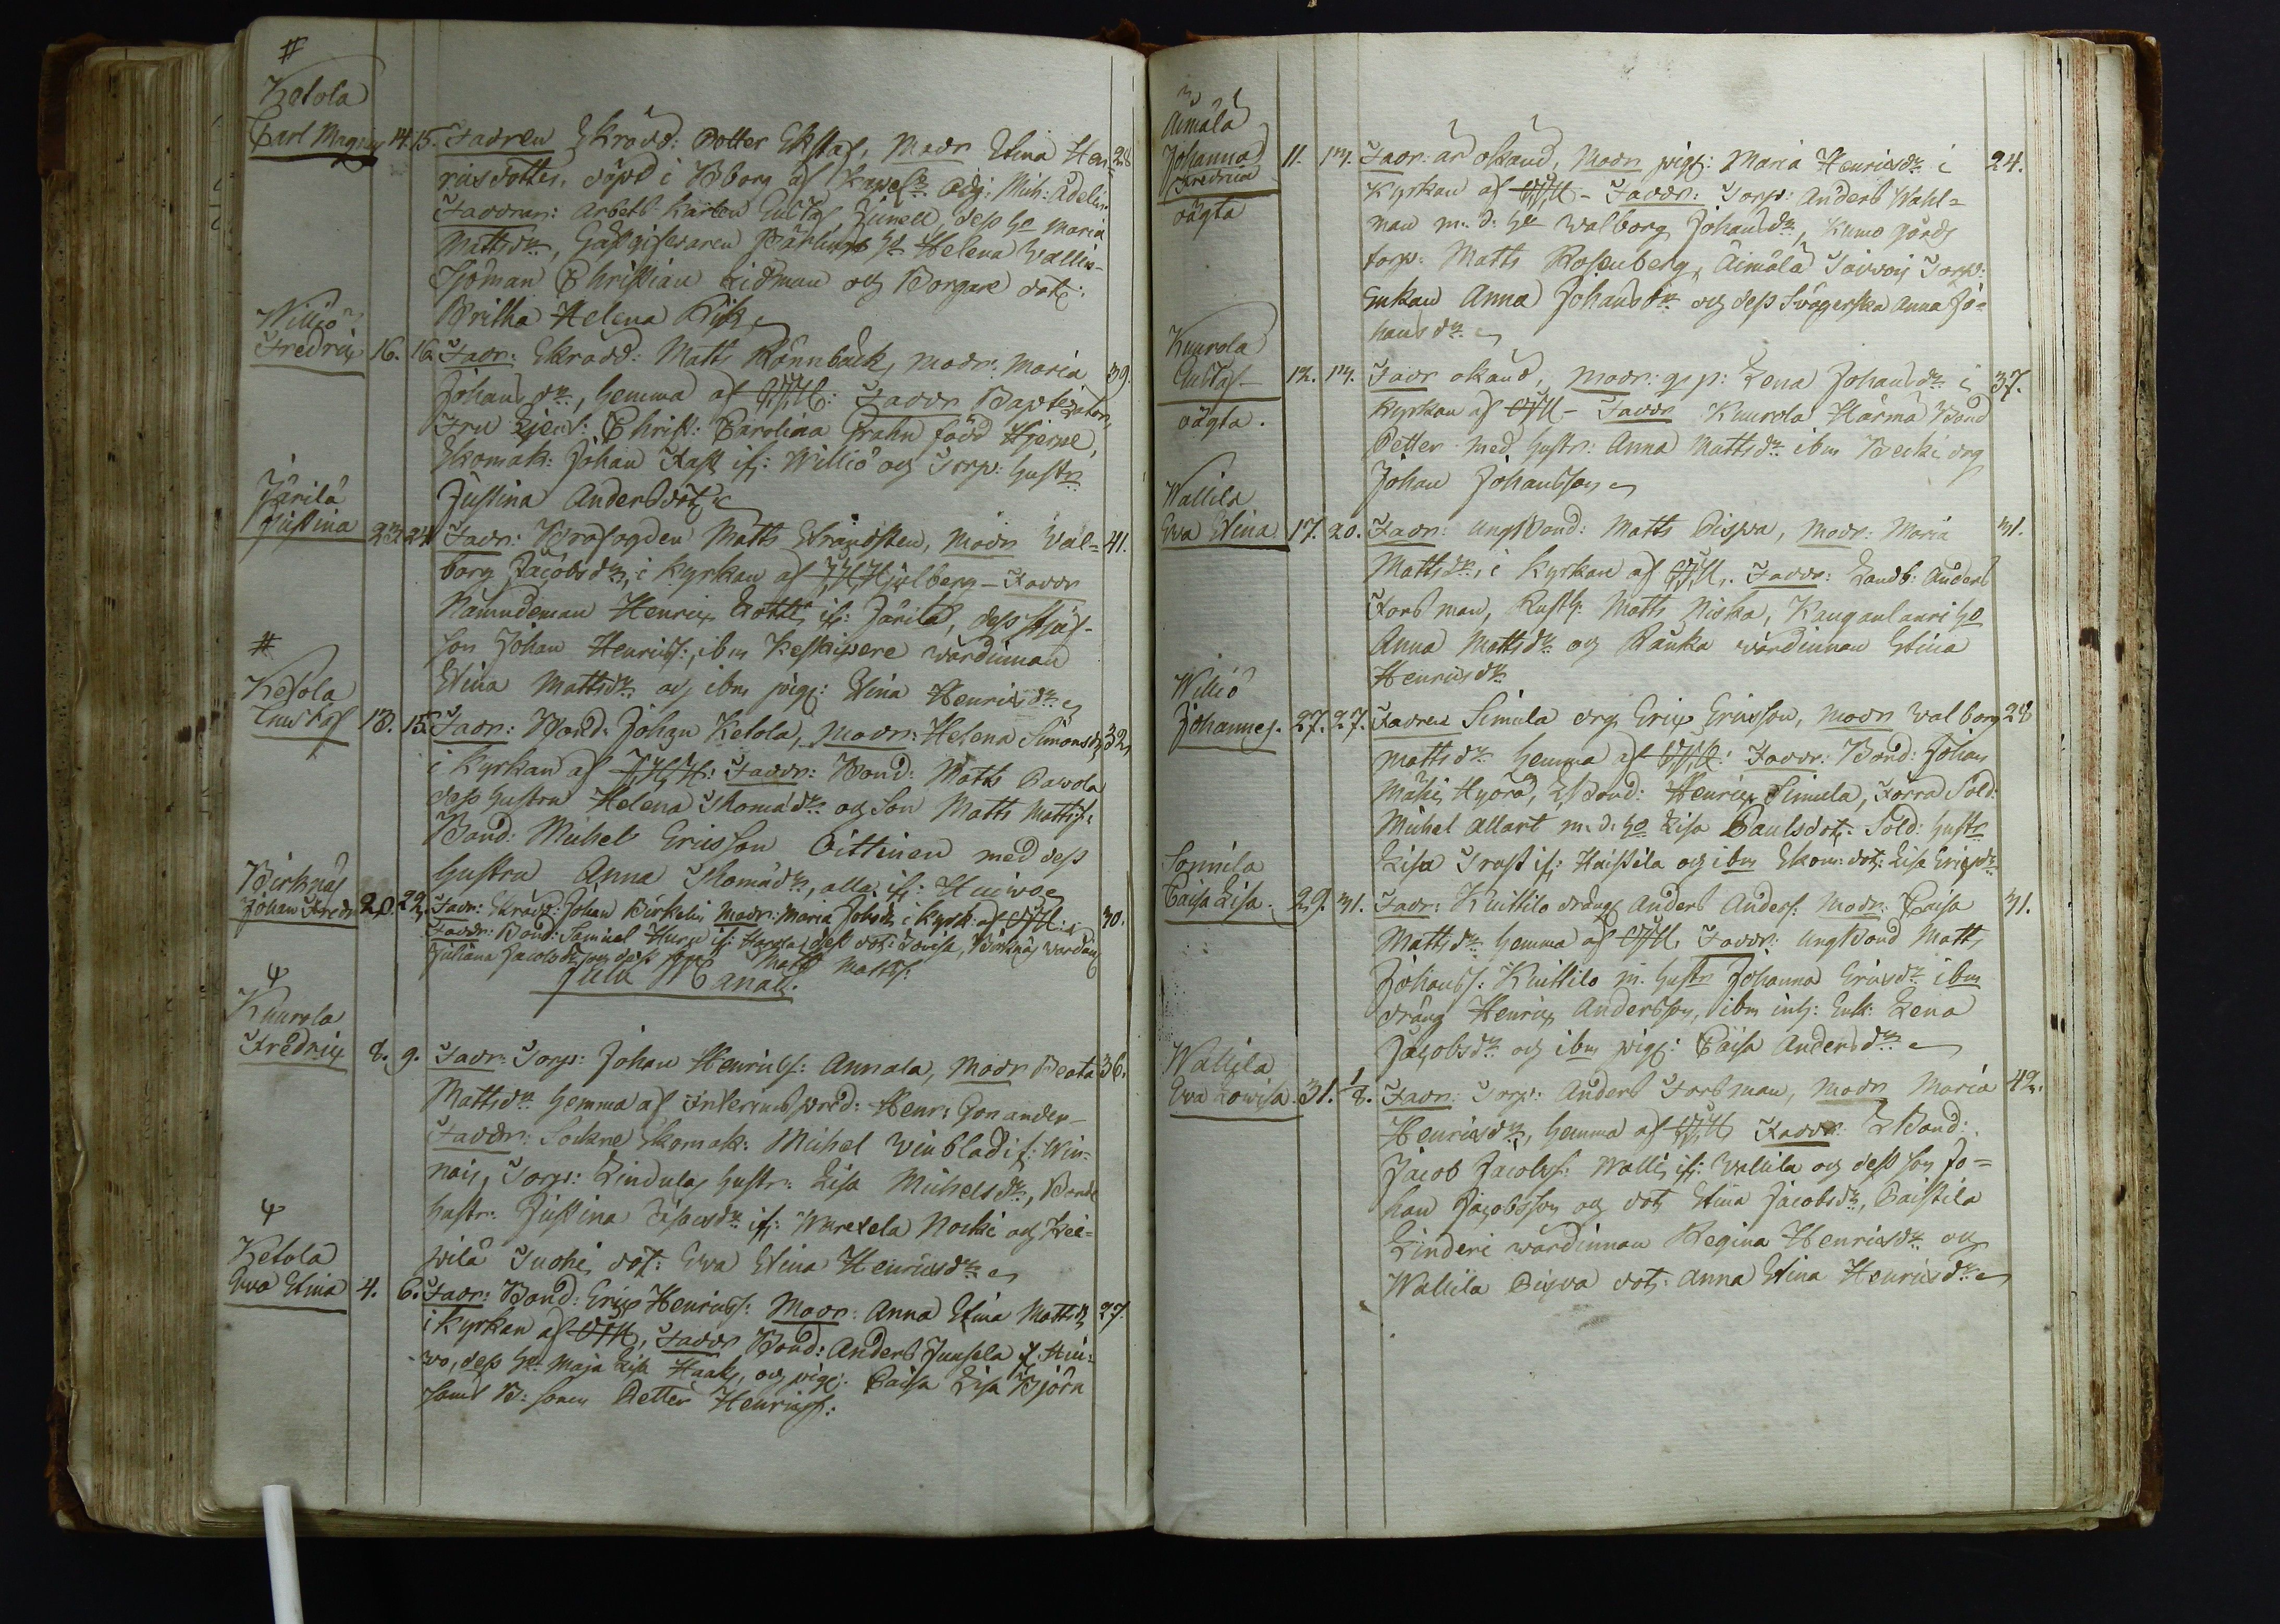 #
Ketola
Carl Magnus 14. 15. Fadren Skrädd: Petter Ekstaf, Modr Stina Hen= 28
ricsdotter, döpt i Bborg af Adj: Mich: Adelin
Faddrar: Arbets Karlen Gustaf, dess ho Maria
Mattsdr, Gästgifvaren ho Helena Wallin
Sjöman Christian Lidman och Borgare dotr:
Britha Helena
Williö
Fredric 16. 16. Fadr: Skrädd: Matts Rönnback, modr: Maria 39.
Johansdr, hemma af Faddr
Fru Christ: Carolina Grahn född Hjerne,
Skomak: Johan Fast if: Williö och Torp: hustr
Justina Andersdotr
Järilä
Justina 23. 24. Fadr: Brofogden Matts Strandsten, Modr Val= 41.
borg Jacobsdr, i Kyrkan af Hjulberg - Faddr
Nämndeman Henric Rotti if: Järilä, dess Stjuf-
son Johan Henricss:, ibm Keskipere wärdinnan
Stina Mattsdr och ibm pig: Stina Henricsdr
#
Ketola
Gustaf 13. 15. Fadr: Bond: Johan Ketola, Modr: Helena Simonsdr 32
i Kyrkan af Faddr: Bond: Matts Pawola
dess hustru Helena Thomadr och Son Matts Mattss:
Bond: Michel Ericsson Oittinen med dess
hustru Anna Thomädr, alla if: Huiwo
Birknäs
Johan Fredr 20. 22. Fadr: Skrädd: Johan Birkelin Modr: Maria Jobsdr i Kyrk: af 30.
Faddr: Bond: Samuel if: dess dotr: Lovisa, Birknäs wärdin
Juliana Jacobsdr och dess Matts Mattss:
Julii Månad.
ψ
Kuurola
Fredric 8. 9. Fadr: Torp: Johan Henricss: Annala, Modr Beata 36.
Mattsdr hemma af Henr: Gonander
Faddr: Sockne Skomak: Michel Winblad if: Win-
nais, Torp: Lindula hustr: Lisa Michelsdr, Bonde
hustr: Justina if: Warekela Noski och Kei-
pilä Suohi dotr: Ewa Stina Henricsdr
ψ
Ketola
Ewa Stina 4. 6. Fadr: Bond: Eric Henricss: Modr: Anna Stina Mattsdr 27.
i Kyrkan af Faddr Bond: Anders Junsela if: Hui-
wo, dess ho: Maja Lisa Haak, och pig: Caisa Lisa Björn
samt B: sonen Petter Henricss:
Äimälä
Johanna 11. 14. Fadr: är okänd, Modr pig: Maria Henricsdr i 24.
Fredrica Kyrkan af Faddr: Torp: Anders Wahl=
oägta man m. d. ho Walborg Johansdr, Kumo gårds
torp: Matts Rosenberg, Äimälä Torp:
Enkan Anna Johansdr och dess Svägerska Anna Jo-
hansdr
Kuurola
Gustaf 12. 14. Fadr okänd, Modr: gp: Lena Johansdr i 37.
oägta. Kyrkan af Faddr Kuurola Härmä Bond
Petter med hustr: Anna Mattsdr ibm Becki drg
Johan Johansson
Wallila
Ewa Stina 17. 20. Fadr: ungBond: Matts Pispa, Modr: Maria 31.
Mattsdr, i Kyrkan af Faddr: Landb: Anders
Forsman, Rusth: Matts Niska, Kauganlauri ho
Anna Mattsdr och Ränka wärdinnan Stina
Henricsdr
Williö
Johannes. 27. 27. Fadren Simula drg Eric Ericsson, Modr Walborg 28
Mattsdr hemma af Faddr: Bond: Johan
Mähi, Hyörä, Bond: Henric Simula, Förra Sold:
Michel Allart m. d. ho Lisa Paulsdotr. Sold: hustr
Lisa Trast if: Haistila och ibm Skom: dotr: Lisa Ericsdr
Sonnila
Caisa Lisa. 29. 31. Fadr: Knittilo dräng Anders Anderss: Modr: Caisa 31.
Mattsdr hemma af Faddr: UngBond Matts
Johanss: Knittilo m. hustr Johanna Ericsdr ibm
dräng Henric Andersson, ibm inh: Enk: Lena
Jacobsdr och ibm pig: Caisa Andersdr
Wallila
Ewa Lowisa. 31. 1/8. Fadr: Torp: Anders Forsman, Modr Maria 42.
Henricsdr, hemma af Faddr: Bond:
Jacob Jacobss: Walli if: Wallila och dess son Jo=
han Jacobsson och dotr Stina Jacobsdr, Paistila
Linderi wärdinnan Regina Henricsdr och
Wallila Pispa dotr: Anna Stina Henricsdr